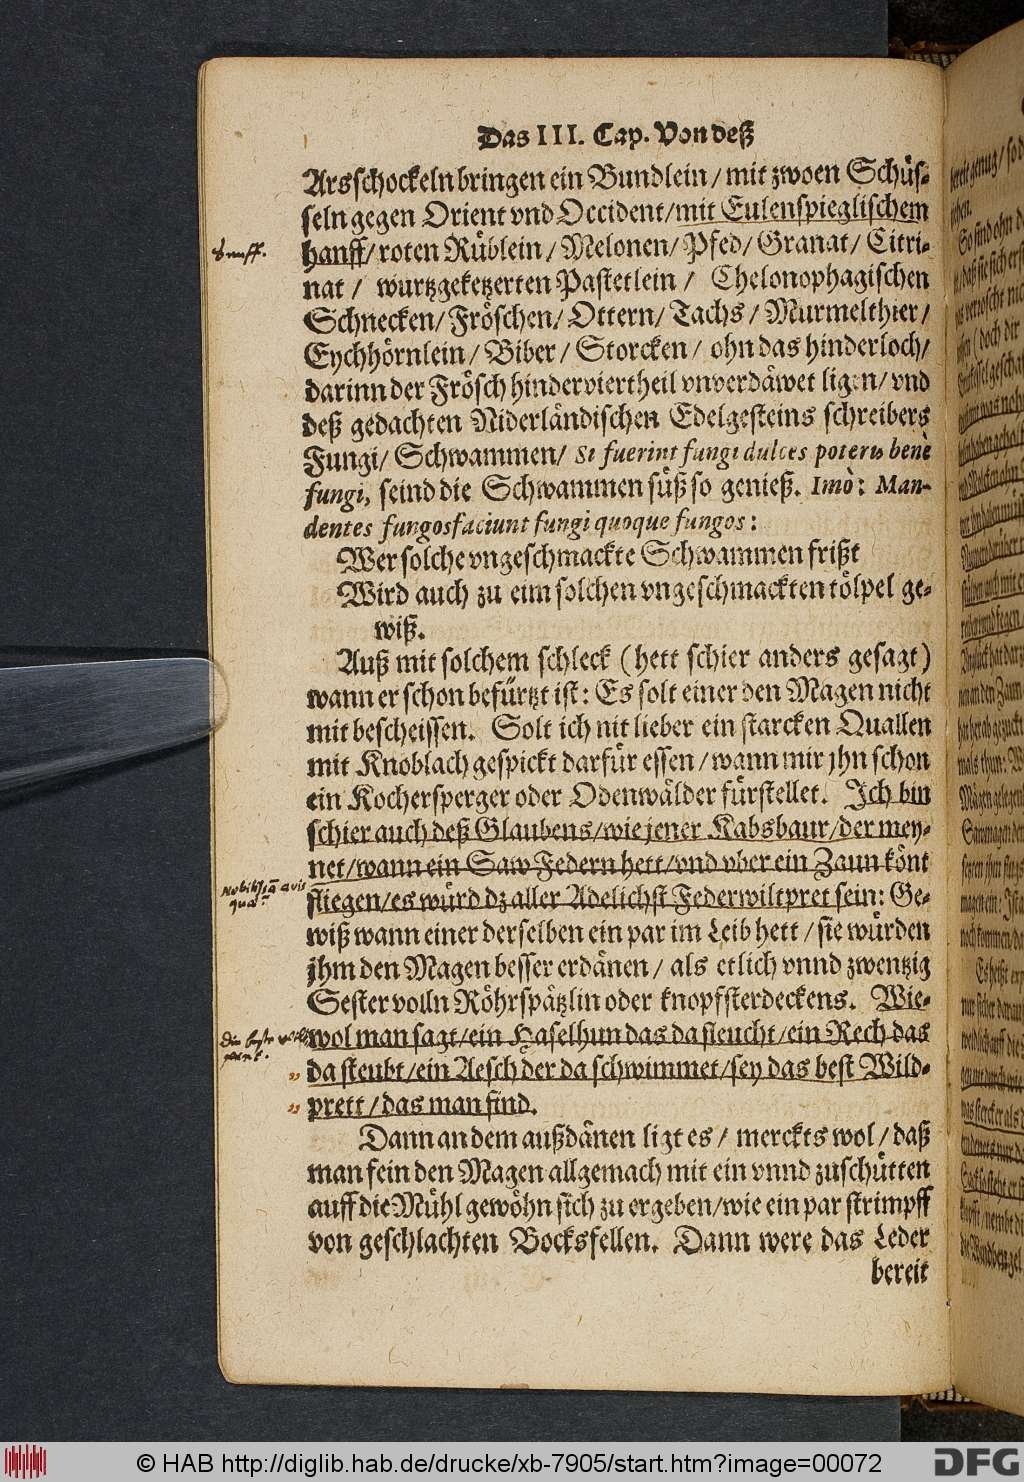 Das III. Cap. Von deß
Arsschockeln bringen ein Bundlein / mit zwoen Schüs-
seln gegen Orient vnd Occident / mit Eulenspieglischem
hanff / roten Rüblein / Melonen / Pfed / Granat / Citri-
nat / wurtzgeketzerten Pastetlein / Chelonophagischen
Schnecken / Fröschen / Ottern / Tachs / Murmelthier /
Eychhörnlein / Biber / Storcken / ohn das hinderloch /
darinn der Frösch hinderviertheil vnverdäwet ligen / vnd
deß gedachten Niderländischen Edelgesteins schreibers
Fungi / Schwammen / Si fuerint fungi dulces poteris benè
fungi, seind die Schwammen süß so genieß. Imò: Man-
dentes fungos faciunt fungi quoque fungos:
Wer solche vngeschmackte Schwammen frißt
Wird auch zu eim solchen vngeschmackten tölpel ge-
wiß.
Auß mit solchem schleck (hett schier anders gesagt)
wann er schon befürtzt ist: Es solt einer den Magen nicht
mit bescheissen. Solt ich nit lieber ein starcken Quallen
mit Knoblach gespickt darfür essen / wann mir jhn schon
ein Kochersperger oder Odenwälder fürstellet. Ich bin
schier auch deß Glaubens / wie jener Kabsbaur / der mey-
net / wann ein Saw Federn hett / vnd vber ein Zaun könt
fliegen / es würd dz aller Adelichst Federwiltpret sein: Ge-
wiß wann einer derselben ein par im Leib hett / sie würden
jhm den Magen besser erdänen / als etlich vnnd zwentzig
Sester volln Röhrspätzlin oder knopfsterdeckens. Wie-
wol man sagt / ein Haselhun das da fleucht / ein Rech das
da steubt / ein Aesch der da schwimmet / sey das best Wild-
prett / das man find.
Dann an dem außdänen ligt es / merckts wol / daß
man fein den Magen allgemach mit ein vnnd zuschütten
auff die Mühl gewöhn sich zu ergeben / wie ein par strimpff
von geschlachten Bocksfellen. Dann were das Leder
bereit
© HAB http://diglib.hab.de/drucke/xb-7905/start.htm?image=00072
DFG